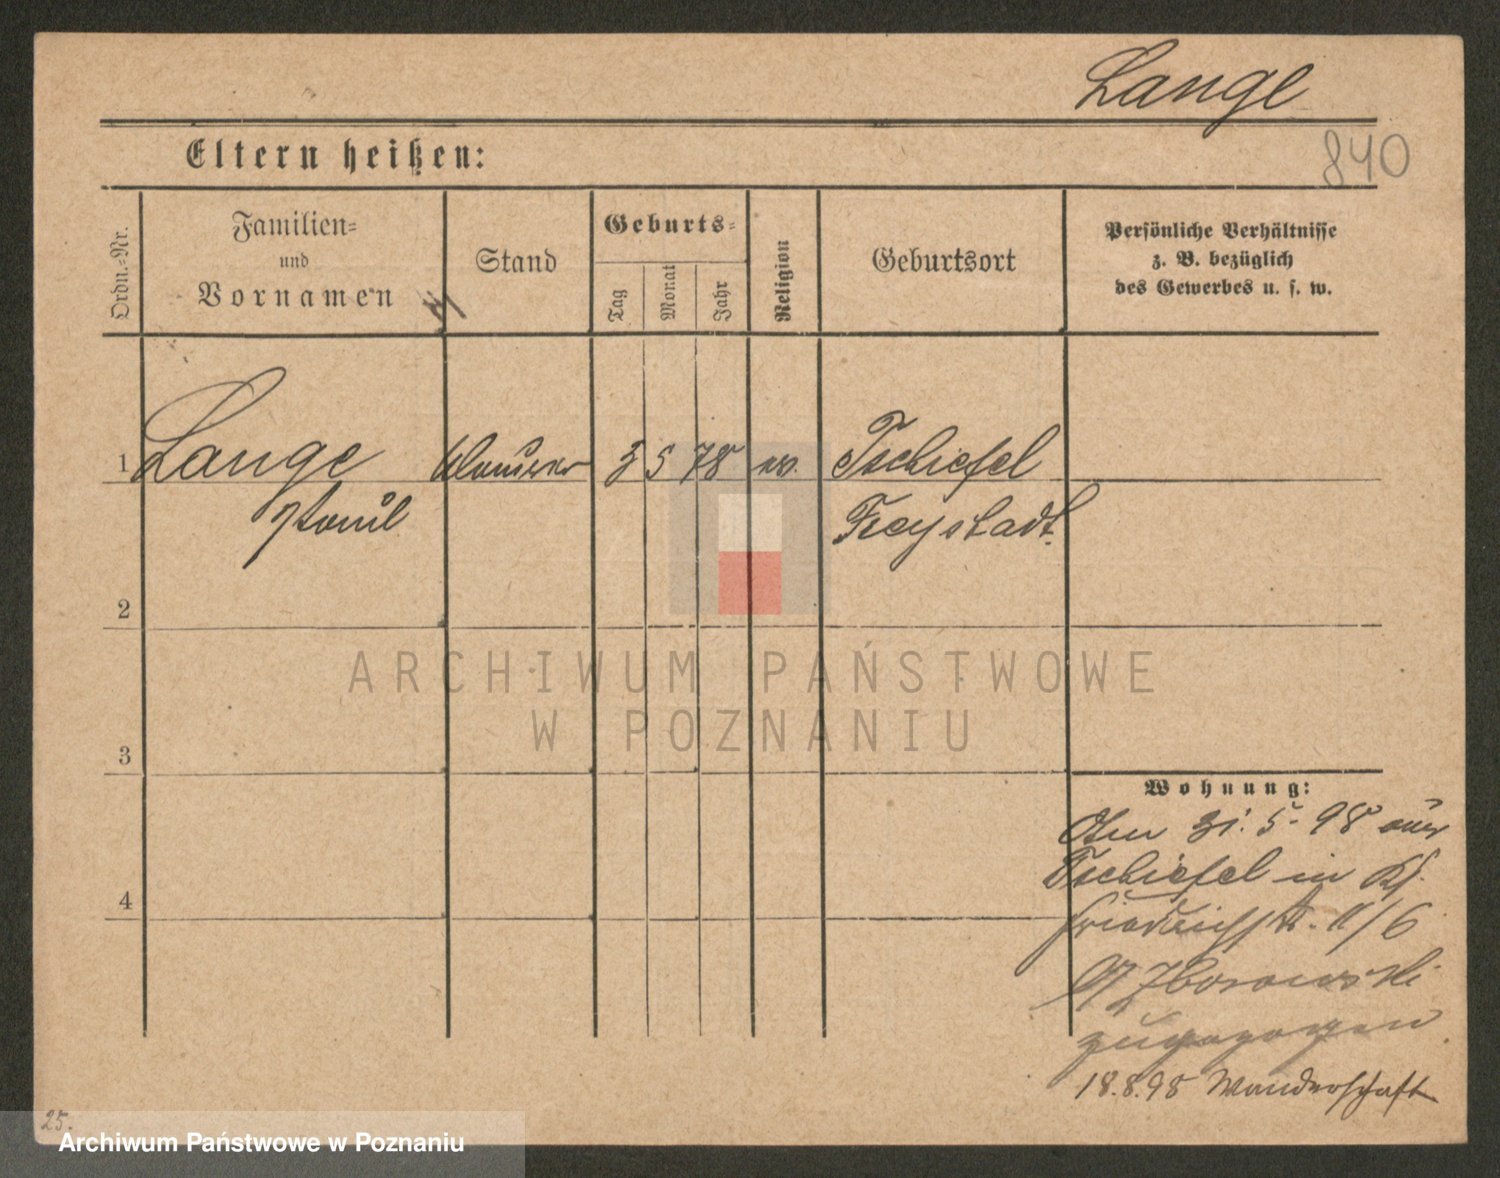 Lange
840
Eltern heißen:
Ordn.-Nr.
Familien-
und
Vornamen
Stand
Geburts-
Tag
Monat
Jahr
Religion
Geburtsort
Persönliche Verhältnisse
z. B. bezüglich
des Gewerbes u. s. w.
1 Lange Maurer 3 5 78 ev. Tschiefel
Paul Freystadt.
2
3
4
Wohnung:
Am 31. 5. 98 aus
Tschiefel in
Friedrichstr. 11/6
Zborowski
zugezogen
18.8.98 Wanderschaft
25.
ARCHIWUM PAŃSTWOWE
W POZNANIU
Archiwum Państwowe w Poznaniu